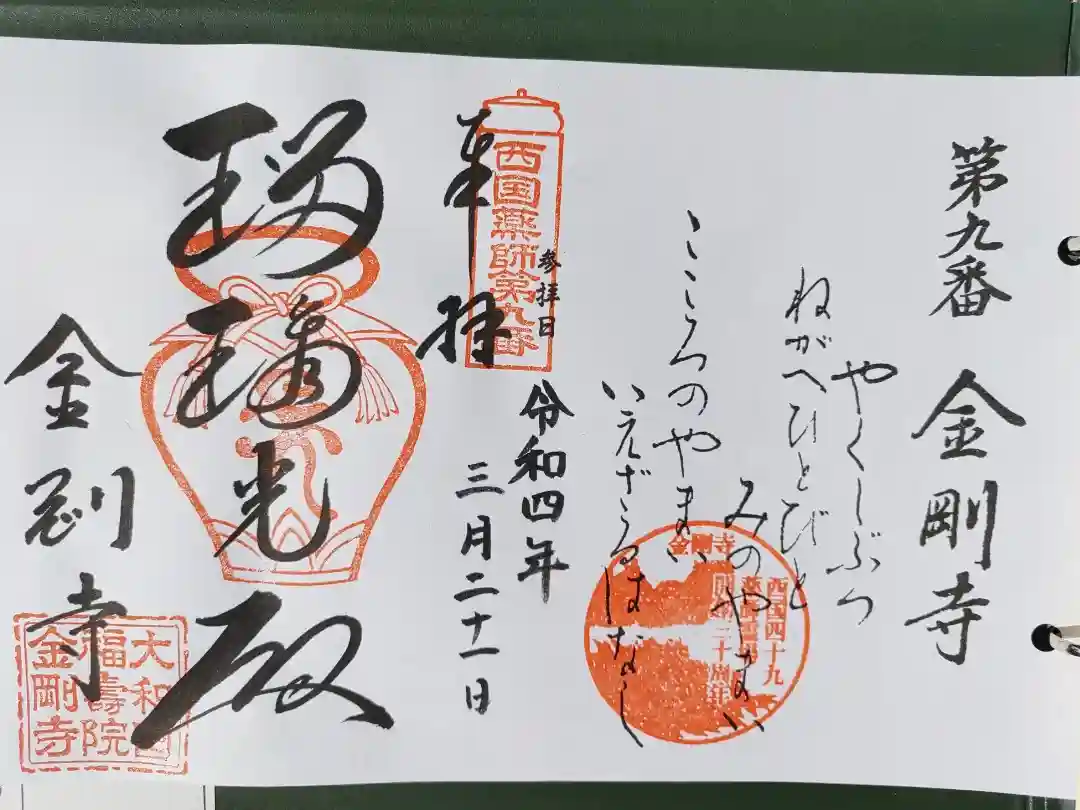 第九番 金剛寺
やくしぶつ
ねがへひとびと
みのやまい
こころのやまい
いえざるはなし
金剛寺
西国四十九
薬師霊場
開創三十周年
参拝日
令和四年
三月二十一日
西国薬師第九番
奉拝
瑠璃光殿
金剛寺
大和国
福壽院
金剛寺